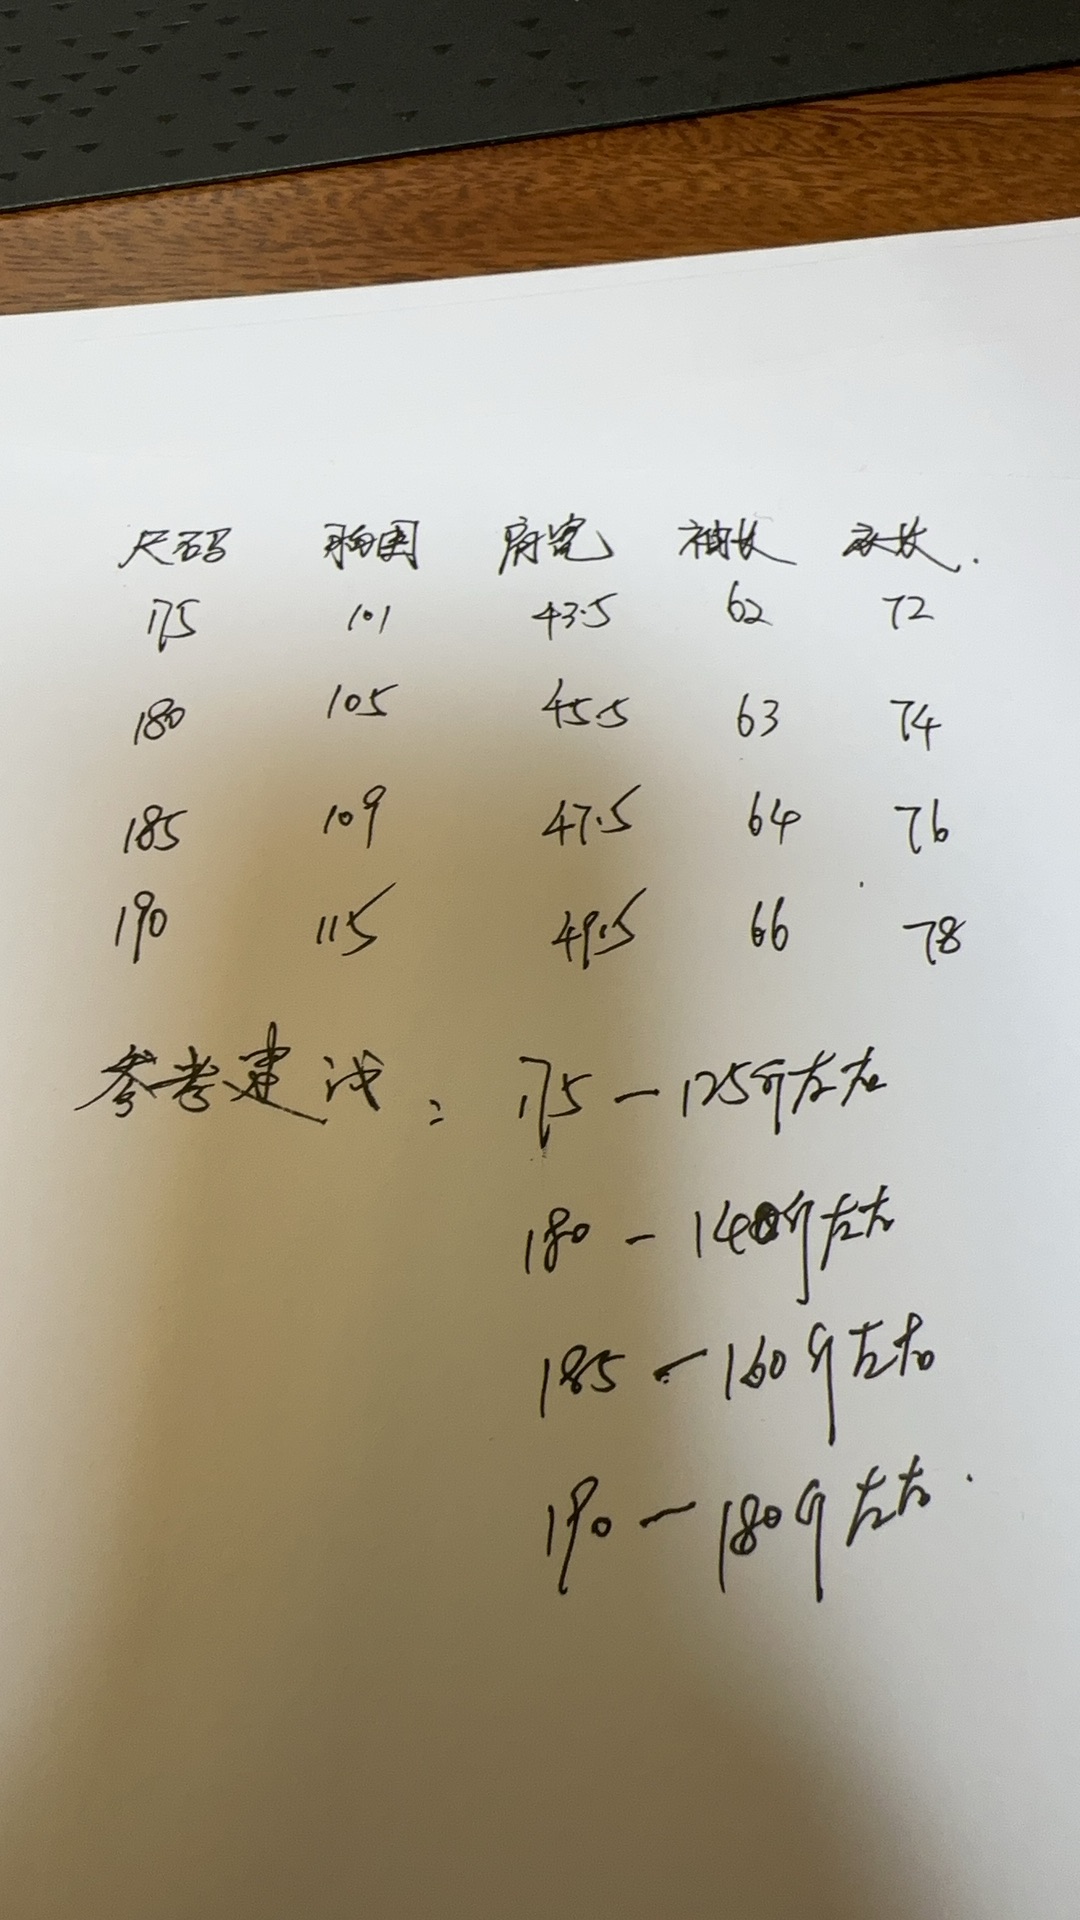 尺码 胸围 肩宽 袖长 衣长.
175 101 43.5 62 72
180 105 45.5 63 74
185 109 47.5 64 76
190 115 49.5 66 78
参考建议: 175-125斤左右
180-140斤左右
185-160斤左右
190-180斤左右.